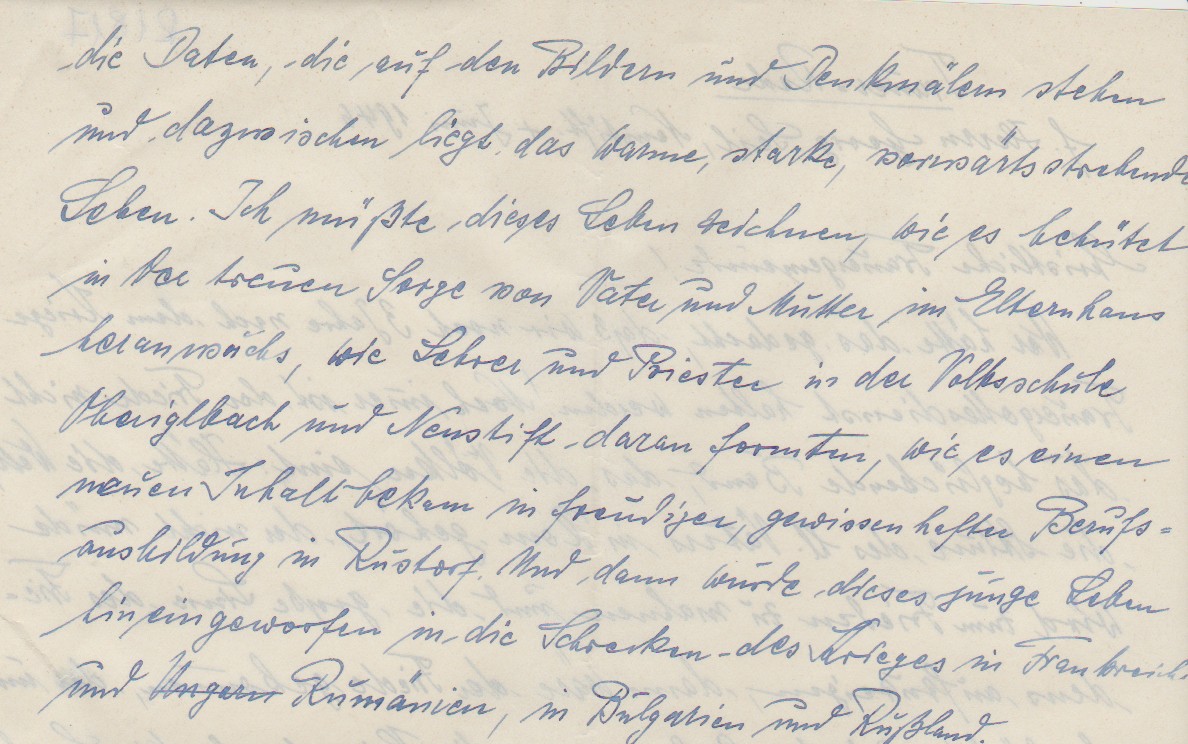 die Daten, die auf den Bildern und Denkmälern stehen
und dazwischen liegt das warme, starke, vorwärtsstrebende
Leben. Ich müßte dieses Leben zeichnen, wie es behütet
in der treuen Sorge von Vater und Mutter im Elternhaus
heranwuchs, wie Lehrer und Priester in der Volksschule
Oberiglbach und Neustift daran formten, wie es einen
neuen Inhalt bekam in freudiger, gewissenhafter Berufs=
ausbildung in Rustorf. Und dann wurde dieses junge Leben
hineingeworfen in die Schrecken des Krieges in Frankreich
und Ungarn Rumänien, in Bulgarien und Rußland.